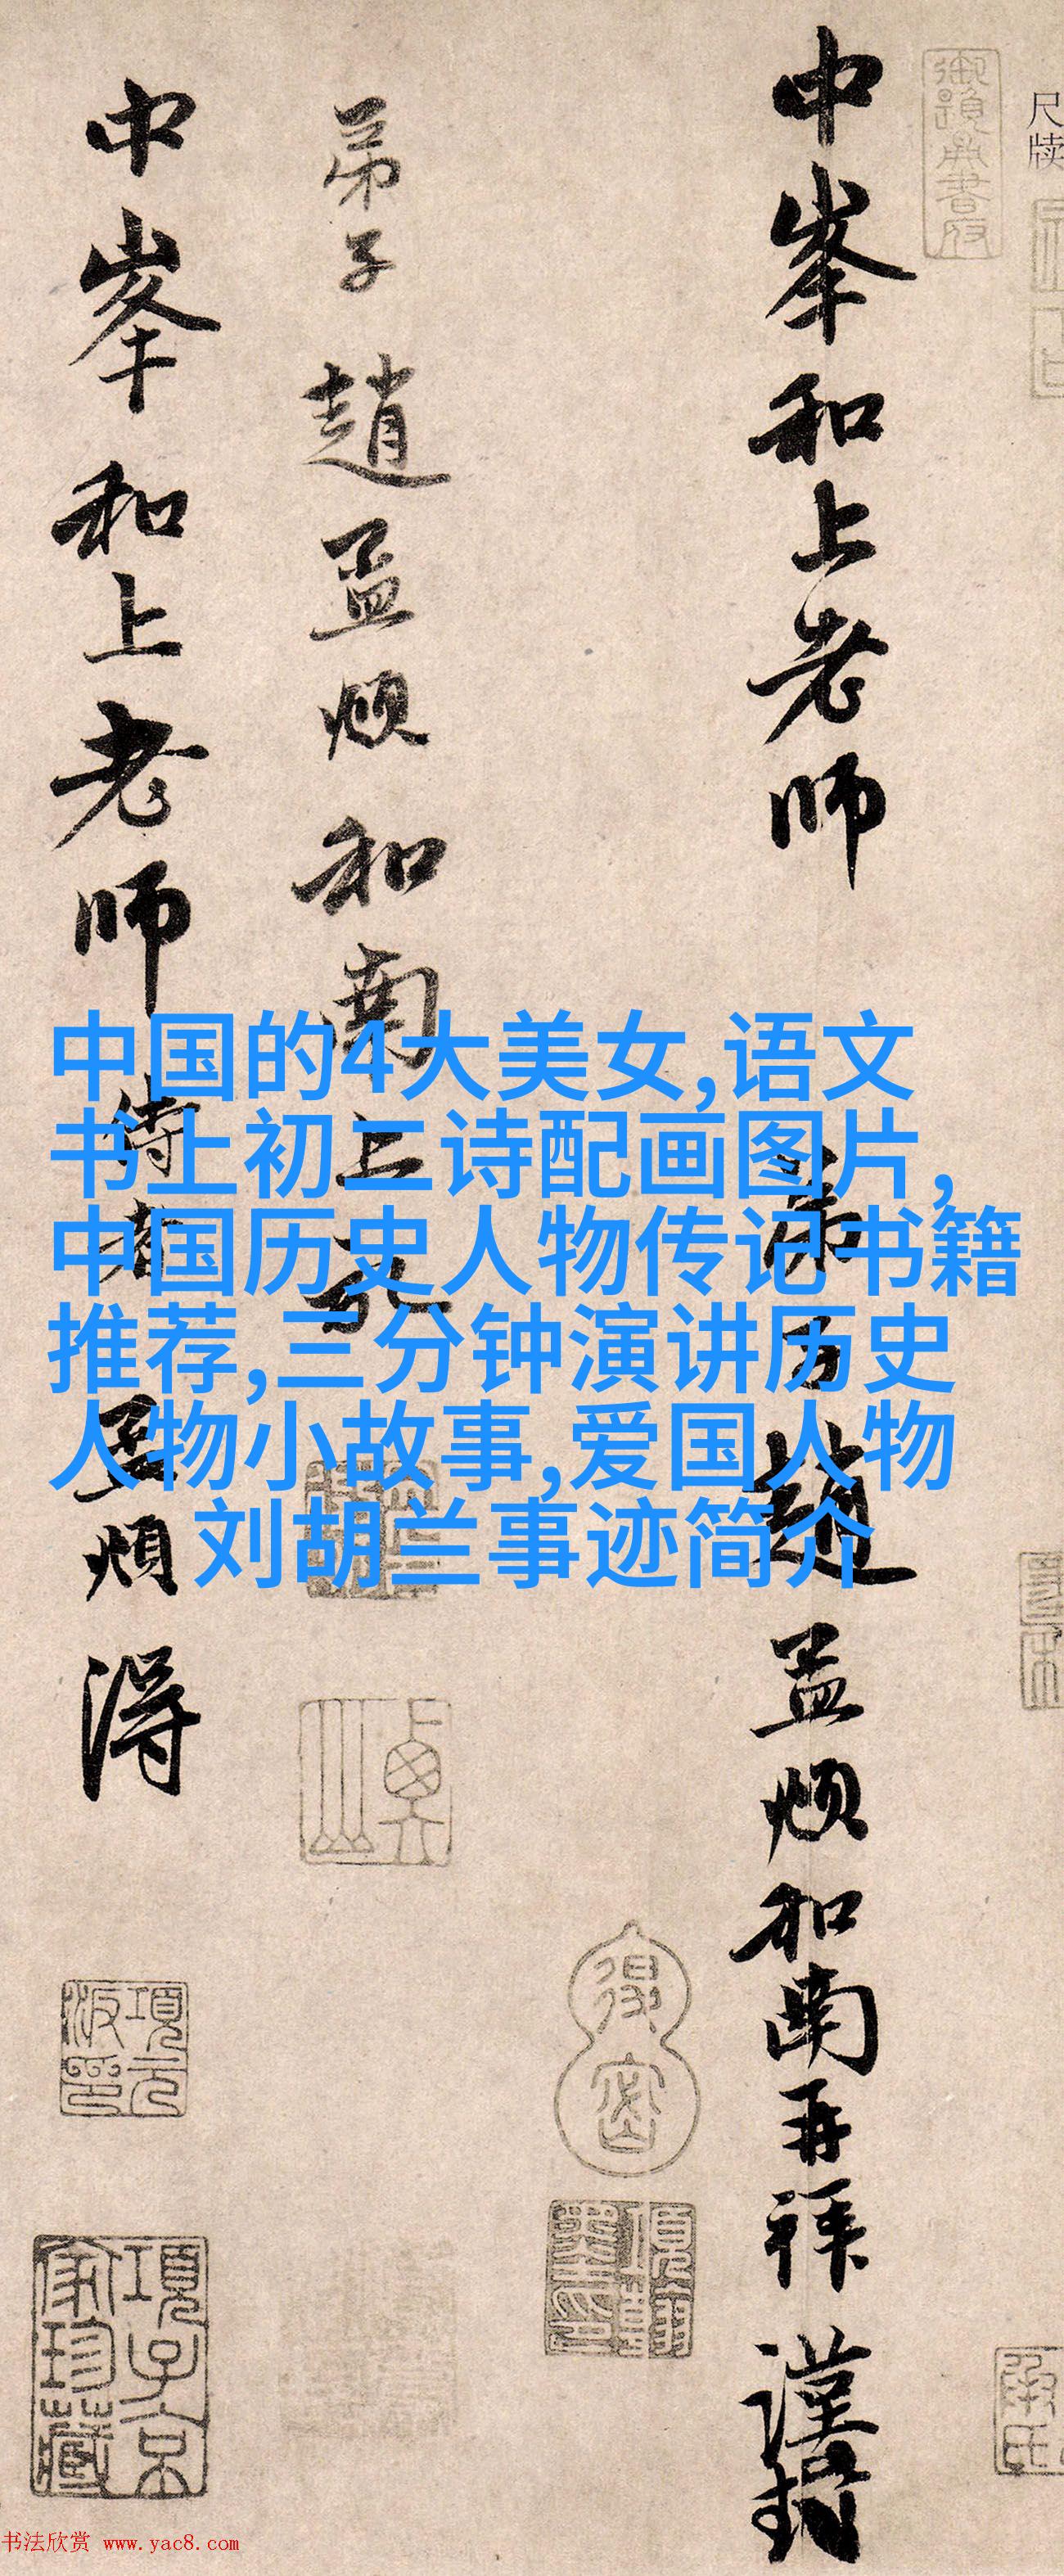 尺牍
中峯和上老师
弟子趙孟頫和南再拜謹封
弟子趙孟頫和南上覆
中峯和上老师侍者 孟頫 謹封
中国的4大美女,语文
书上初二诗配画图片,
中国历史人物传记书籍
推荐,三分钟演讲历史
人物小故事,爱国人物
刘胡兰事迹简介
項子京
家珍藏
书法欣赏 www.yac8.com